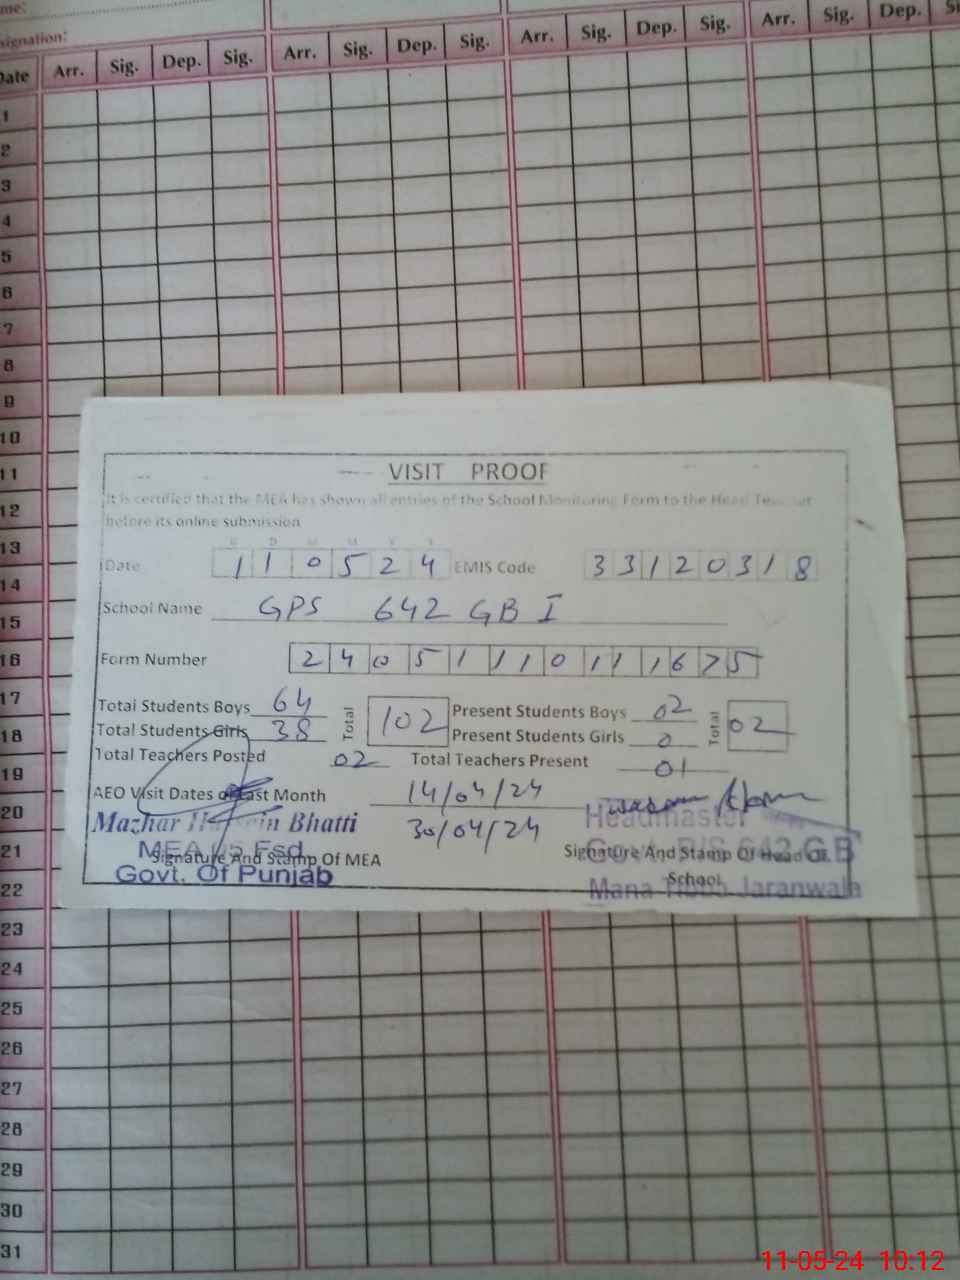 me:
signation:
Date Arr. Sig. Dep. Sig. Arr. Sig. Dep. Sig. Arr. Sig. Dep. Sig. Arr. Sig. Dep.
1
2
3
4
5
6
7
8
9
10
11
12
13
14
15
16
17
18
19
20
21
22
23
24
25
26
27
28
29
30
31
VISIT PROOF
It is certified that the MEA has shown all entries of the School Monitoring Form to the Head Teacher
before its online submission
D D M M Y Y
Date 1 1 0 5 2 4 EMIS Code 3 3 1 2 0 3 1 8
School Name GPS 642 GB I
Form Number 2 4 0 5 1 1 1 0 1 1 1 6 7 5
Total Students Boys 64 Total 102 Present Students Boys 02 Total 02
Total Students Girls 38 Present Students Girls 0
Total Teachers Posted 02 Total Teachers Present 01
AEO Visit Dates of Last Month 14/04/24
30/04/24
Mazhar Hussein Bhatti
MEA 05 Fsd
Signature And Stamp Of MEA
Govt. Of Punjab
Headmaster
642 GB
Signature And Stamp Of Head Of
School
Mana Tibba Jaranwala
11-05-24 10:12